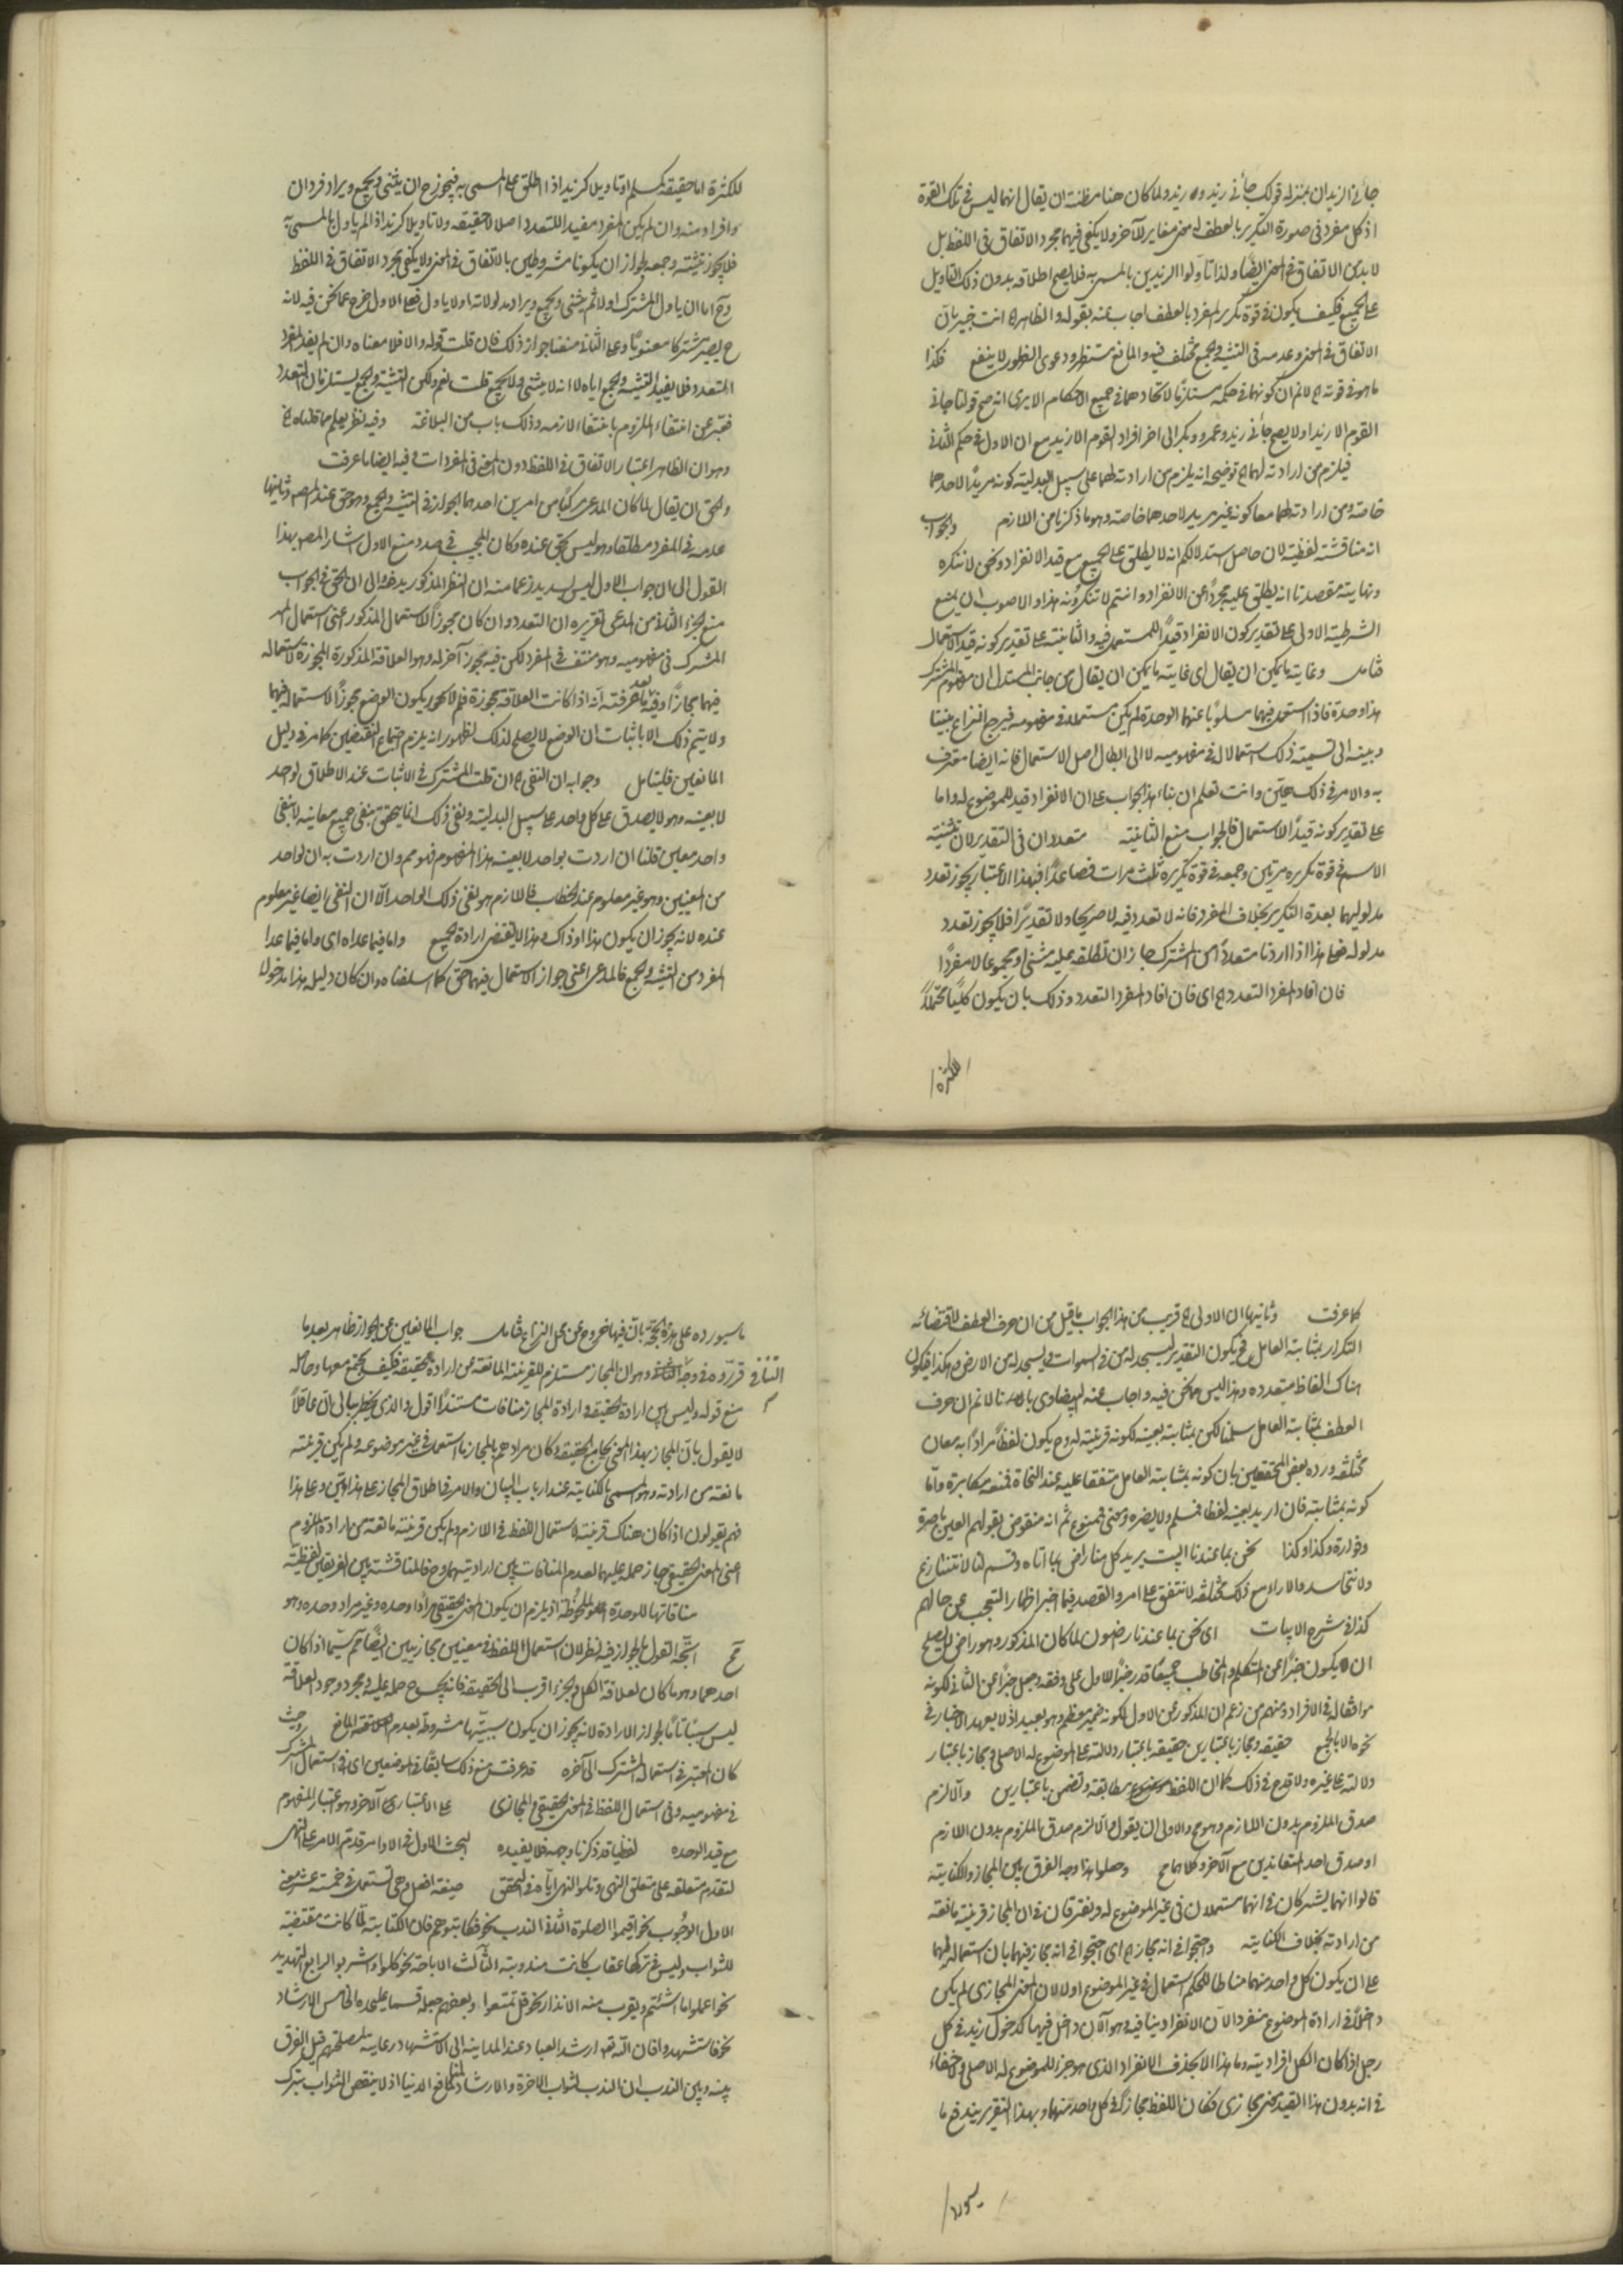 جائنى الزيدان بمنزلة قولك جائنى زيد وزيد ولما كان هنا مظنة ان يقال انهما ليس فى تلك القوة
اذ كل مفرد فى صورة التكرير بالعطف له معنى مغاير للآخر ولا يكفى فيهما مجرد الاتفاق فى اللفظ بل
لا بد من الاتفاق فى المعنى ايضا ولذا تأولوا الزيدين بالمسمى به فلا يصح اطلاقه بدون ذلك التاويل
على الجميع فكيف يكون فى قوة تكرير المفرد بالعطف اجاب عنه بقوله والظاهر اه انت خبير بان
الاتفاق فى المعنى وعدمه فى التثنية والجمع مختلف فيه والمانع مستظهر ودعوى الظهور لا ينفع فكذا
ما هو فى قوته اه لانم ان كونهما فى حكمه مستلزما لاتحادهما فى جميع الاحكام الا يرى انه صح قولنا جائنى
القوم الا زيدا ولا يصح جائنى زيد وعمرو وبكر الى اخر افراد القوم الا زيد مع ان الاول فى حكم الثانى
فيلزم من ارادته لهما اه توضيحه انه يلزم من ارادته لهما على سبيل البدلية كونه مريدا لاحدهما
خاصة ومن ارادته لهما معا كونه غير مريد لاحدهما خاصة وهو ما ذكرنا من اللازم والجواب
انه مناقشة لفظية لان حاصل استدلالكم انه لا يطلق على الجميع مع قيد الانفراد ونحن لا ننكره
ونهاية مقصدنا انه يطلق عليه مجردا عن الانفراد وانتم لا تنكرونه هذا والاصوب ان يمنع
الشرطية الاولى على تقدير كون الانفراد قيدا للمستعمل فيه والثانية على تقدير كونه قيد الاستعمال
فتامل وغاية ما يمكن ان يقال اى غاية ما يمكن ان يقال من جانب المستدل ان مفهوم المشترك
هذا وحده فاذا استعمل فيهما مسلوبا عنهما الوحدة لم يكن مستعملا فى مفهوميه فيرجع النزاع بيننا
وبينه الى تسمية ذلك استعمالا له فى مفهوميه لا الى ابطال اصل الاستعمال فانه ايضا معترف
به والامر فى ذلك هين وانت تعلم ان بناء هذا الجواب على ان الانفراد قيد للموضوع له واما
على تقدير كونه قيدا للاستعمال فالجواب منع الثانية متعددان فى التقدير لان تثنية
الاسم فى قوة تكريره مرتين وجمعه فى قوة تكريره ثلث مرات فصاعدا فبهذا الاعتبار يجوز تعدد
مدلوليهما بعدة التكرير بخلاف المفرد فانه لا تعدد فيه لا صريحا ولا تقديرا فلا يجوز تعدد
مدلوله فعلى هذا اذا اردنا متعددا من المشترك جاز ان نطلقه عليه مثنى او مجموعا لا مفردا
فان افاد المفرد التعدد اه اى فان افاد المفرد التعدد وذلك بان يكون كليا محتملا
للكثرة
للكثرة اما حقيقة كمسلم او تاويلا كزيد اذا اطلق على المسمى به فيجوز ح ان يثنى ويجمع ويراد فردان
وافراد منه وان لم يكن المفرد مفيدا للتعدد اصلا لا حقيقة ولا تاويلا كزيد اذا لم ياول بالمسمى به
فلا يجوز تثنيته وجمعه لجواز ان يكونا مشروطين بالاتفاق فى المعنى ولا يكفى مجرد الاتفاق فى اللفظ
وح اما ان ياول المشترك اولا ثم يثنى ويجمع ويراد مدلولاته او لا ياول فعلى الاول خرج عما نحن فيه لانه
ح يصير مشتركا معنويا وعلى الثانى منعنا جواز ذلك فان قلت قوله والا فلا معناه وان لم يفد المفرد
التعدد فلا يفيد التثنية والجمع اياه لا انه لا يثنى ولا يجمع قلت نعم ولكن التثنية والجمع يستلزمان التعدد
فعبر عن انتفاء الملزوم بانتفاء لازمه وذلك باب من البلاغة وفيه نظر يعلم مما قلناه اه
وهو ان الظاهر اعتبار الاتفاق فى اللفظ دون المعنى فى المفردات وفيه ايضا ما عرفت
والحق ان يقال لما كان المدعى مركبا من امرين احدهما الجواز فى التثنية والجمع وهو حق عند المصنف وثانيهما
عدمه فى المفرد مطلقا وهو ليس بحق عنده وكان المجيب فى صدد منع الاول اشار المصنف بهذا
القول الى ان جواب الاول ليس بسديد زعما منه ان النظر المذكور يدفعه والى ان الحق فى الجواب
منع الجزء الثانى من المدعى تقريره ان التعدد وان كان مجوزا للاستعمال المذكور اعنى استعمال
المشترك فى مفهوميه وهو منتف فى المفرد لكن فيه مجوز آخر له وهو العلاقة المذكورة المجوزة لاستعماله
فيهما مجازا وفيه بعد ما عرفت انه اذا كانت العلاقة مجوزة فلم لا يجوز ان يكون الوضع مجوزا لاستعماله فيهما
ولا يتم ذلك الا باثبات ان الوضع لا يصلح لذلك لظهور انه يلزم اجتماع النقيضين كما مر فى دليل
المانعين فليتامل وجوابه ان النفى اه ان قلت المشترك فى الاثبات عند الاطلاق لواحد
لا بعينه وهو لا يصدق على كل واحد على سبيل البدلية ونفى ذلك انما يتحقق بنفى جميع معانيه لا بنفى
واحد معين قلنا ان اردت بواحد لا بعينه هذا المفهوم فهو مم وان اردت به ان لواحد
من المعينين وهو غير معلوم عند المخاطب فاللازم هو نفى ذلك الواحد الا ان النفى ايضا غير معلوم
عنده لانه يجوز ان يكون هذا او ذاك وهذا لا يقتضى ارادة الجميع واما فيما عداه اى واما فيما عدا
المفرد من التثنية والجمع فالمدعى اعنى جواز الاستعمال فيهما حق كما اسلفناه وان كان دليله هذا مدخولا
كما عرفت وثانيهما ان الاولى اه قريب من هذا الجواب ما قيل من ان حرف العطف لاقتضائه
التكرار بمثابة العامل فيكون التقدير يسجد له من فى السموات ويسجد له من الارض وهكذا فيكون
هناك الفاظ متعددة وهذا ليس مما نحن فيه واجاب عنه البيضاوى بانا لانم ان حرف
العطف بمثابة العامل سلمنا لكن بمثابته بعينه لكونه قرينة له وح يكون لفظا مرادا به معان
مختلفة ورده بعض المحققين بان كونه بمثابة العامل متفقا عليه عند النحاة فمنعه مكابرة واما
كونه بمثابته فان اريد بعينه لفظا فمسلم ولا يضره ومعنى فممنوع ثم انه منقوض بقولهم العين باصرة
وفوارة وكذا وكذا نحن بما عندنا البيت يريد كل منا راض بما اتاه وقسم لنا لا نتنازع
ولا نتحاسد والاراء مع ذلك مختلفة لا نتفق على امر والقصد فيما اخبر اظهار التعجب عن حالهم
كذا فى شرح الابيات اى نحن بما عندنا راضون لما كان المذكور وهو راض لا يصلح
ان يكون خبرا عن المتكلم والمخاطب جميعا قدر خبرا للاول على وفقه وجعل خبرا عن الثانى لكونه
موافقا له فى الافراد ومنهم من زعم ان المذكور عن الاول لكونه ضمير معظم وهو بعيد اذ لا يعهد الاخبار فى
نحوه الا بالجمع حقيقة ومجاز باعتبارين حقيقة باعتبار دلالته على الموضوع له الاصلى ومجاز باعتبار
دلالته على غيره ولا قدح فى ذلك كما ان اللفظ مطابقة وتضمن باعتبارين والا لزم
صدق الملزوم بدون اللازم وهو مح والاولى ان يقول والا لزم صدق الملزوم بدون اللازم
او صدق احد المتعاندين مع الآخر وكلاهما مح وجعلوا هذا وجه الفرق بين المجاز والكناية
قالوا انهما يشتركان فى انهما مستعملان فى غير الموضوع له ويفترقان فى ان المجاز قرينة مانعة
من ارادته بخلاف الكناية واحتجوا فى انه مجاز اه اى احتجوا فى انه مجاز فيهما بان استعماله لهما
على ان يكون كل واحد منهما مناطا للحكم استعمال فى غير الموضوع له اولا لان المعنى المجازى لم يكن
داخلا فى ارادة الموضوع منفردا لان الانفراد ينافيه وهو الآن داخل فيهما كدخول زيد فى كل
رجل اذا كان الكل افراديته وما هذا الا بحذف الانفراد الذى هو جزء للموضوع له الاصلى ولا خفاء
فى انه بدون هذا القيد معنى مجازى فكان اللفظ مجازا فى كل واحد منهما وبهذا التقرير يندفع ما
سيورده
ما سيورده على هذه الحجة بان فيها خروج عن محل النزاع فتامل جواب المانعين عن الجواز ظاهر بعد ما
قرروه فى وجه التنافى وهو ان المجاز مستلزم للقرينة المانعة عن ارادة الحقيقة فكيف يجتمع معها وحاصله
منع قوله وليس بين ارادة الحقيقة وارادة المجاز منافات مستندا اقول والذى يخطر ببالى ان عاقلا
لا يقول بان المجاز بهذا المعنى يجامع الحقيقة وكان مرادهم بالمجاز ما استعمل فى غير موضوعه ولم يكن قرينته
مانعة من ارادته وهو المسمى بالكناية عند ارباب البيان والامر فى اطلاق المجاز على هذا هين وعلى هذا
فهم يقولون اذا كان هناك قرينة لاستعمال اللفظ فى اللازم ولم يكن قرينة مانعة من ارادة الملزوم
اعنى المعنى الحقيقى جاز حمله عليهما لعدم المنافات بين ارادتيهما وح فالمناقشة بين الفريقين لفظية
منافاتها للوحدة الملحوظة اذ يلزم ان يكون المعنى الحقيقى مرادا وحده وغير مراد وحده وهو
مح اتجه القول بالجواز فيه نظر لان استعمال اللفظ فى معنيين مجازيين ايضا مم سيما اذا كان
احدهما وهو ما كان لعلاقة الكل والجزء اقرب الى الحقيقة فانه يجب ح حمله عليه ومجرد وجود العلاقة
ليس سببا تاما لجواز الارادة لانه يجوز ان يكون سببيتها مشروطة بعدم المانع وحيث
كان المعتبر فى استعمال المشترك الى آخره قد عرفت منع ذلك سابقا فى الموضعين اى فى استعمال المشترك
فى مفهوميه وفى استعمال اللفظ فى المعنى الحقيقى والمجازى على الاعتبار الآخر وهو اعتبار المفهوم
مع قيد الوحدة لفظيا قد ذكرنا وجهه فلا يفيده البحث الاول فى الاوامر قدم الامر على النهى
لتقدم متعلقه على متعلق النهى وتلو النهى اياه فى التحقق صيغة افعل وهى تستعمل فى خمسة عشر معنى
الاول الوجوب نحو اقيموا الصلوة الثانى الندب نحو فكاتبوهم فان الكتابة لما كانت مقتضية
للثواب وليس فى تركها عقاب كانت مندوبة الثالث الاباحة نحو كلوا واشربوا الرابع التهديد
نحو اعملوا ما شئتم ويقرب منه الانذار نحو قل تمتعوا وبعضهم جعله قسما عليحده الخامس الارشاد
نحو فاستشهدوا فان الله تع ارشد العباد عند المداينة الى الاستشهاد رعاية لمصلحتهم قيل الفرق
بينه وبين الندب ان الندب لثواب الآخرة والارشاد لمنافع الدنيا اذ لا ينقص الثواب بترك